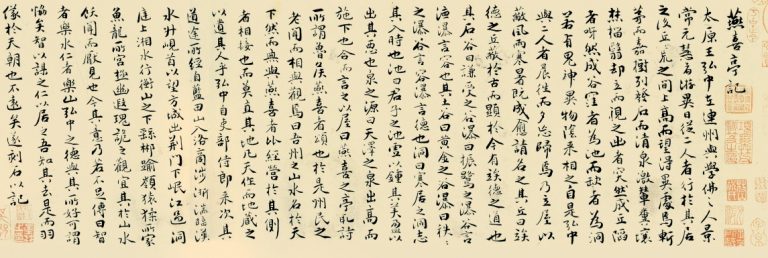 燕喜亭記
太原王弘中在連州與學佛之人景
常元慧者游異日從二人者行於其居
之後丘荒之間上高而望得異處焉斬
茅而嘉樹列發石而清泉激輦糞壤
燔椔翳却立而視之出者突然成丘陷
者呀然成谷窪者為池而缺者為洞
若有鬼神異物陰來相之自是弘中
與二人者晨往而夕忘歸焉乃立屋以
蔽風雨寒暑既成愈請名之其丘曰俟
德之丘蔽於古而顯於今有俟德之道也
其石谷曰謙受之谷瀑曰振鷺之瀑谷言
德瀑言容其土谷曰黃金之谷瀑曰秩秩
之瀑谷言容瀑言德也洞曰寒居之洞志
其入時也池曰君子之池虛以鍾其美盈以
出其惡也泉之源曰天澤之泉出高而
施下也合而言之以屋曰燕喜之亭取詩
所謂魯侯燕喜者頌也於是州民之
老聞而相與觀焉曰吾州之山水名於天
下然而無與燕喜者比經營於其側
者相接也而莫直其地凡天作而地藏之
以遺其人乎弘中自吏部侍郎來次其
道途所經自藍田山入洛商涉淅湍臨漢
水升峴首以望方城出荊門下岷江過洞
庭上湘水行衡山之下繇郴踰嶺猿狖所家
魚龍所宮極幽遐瑰詭之觀宜其於山水
飫聞而厭見也今其意乃若不足傳曰智
者樂水仁者樂山弘中之德與其所好可謂
協矣智以謀之仁以居之吾知其去是而羽
儀於天朝也不遠矣遂刻石以記